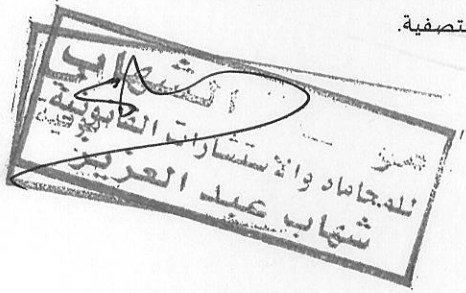 تصفية.
الشهاب
للمحاماه والاستشارات القانونية
شهاب عبد العزيز